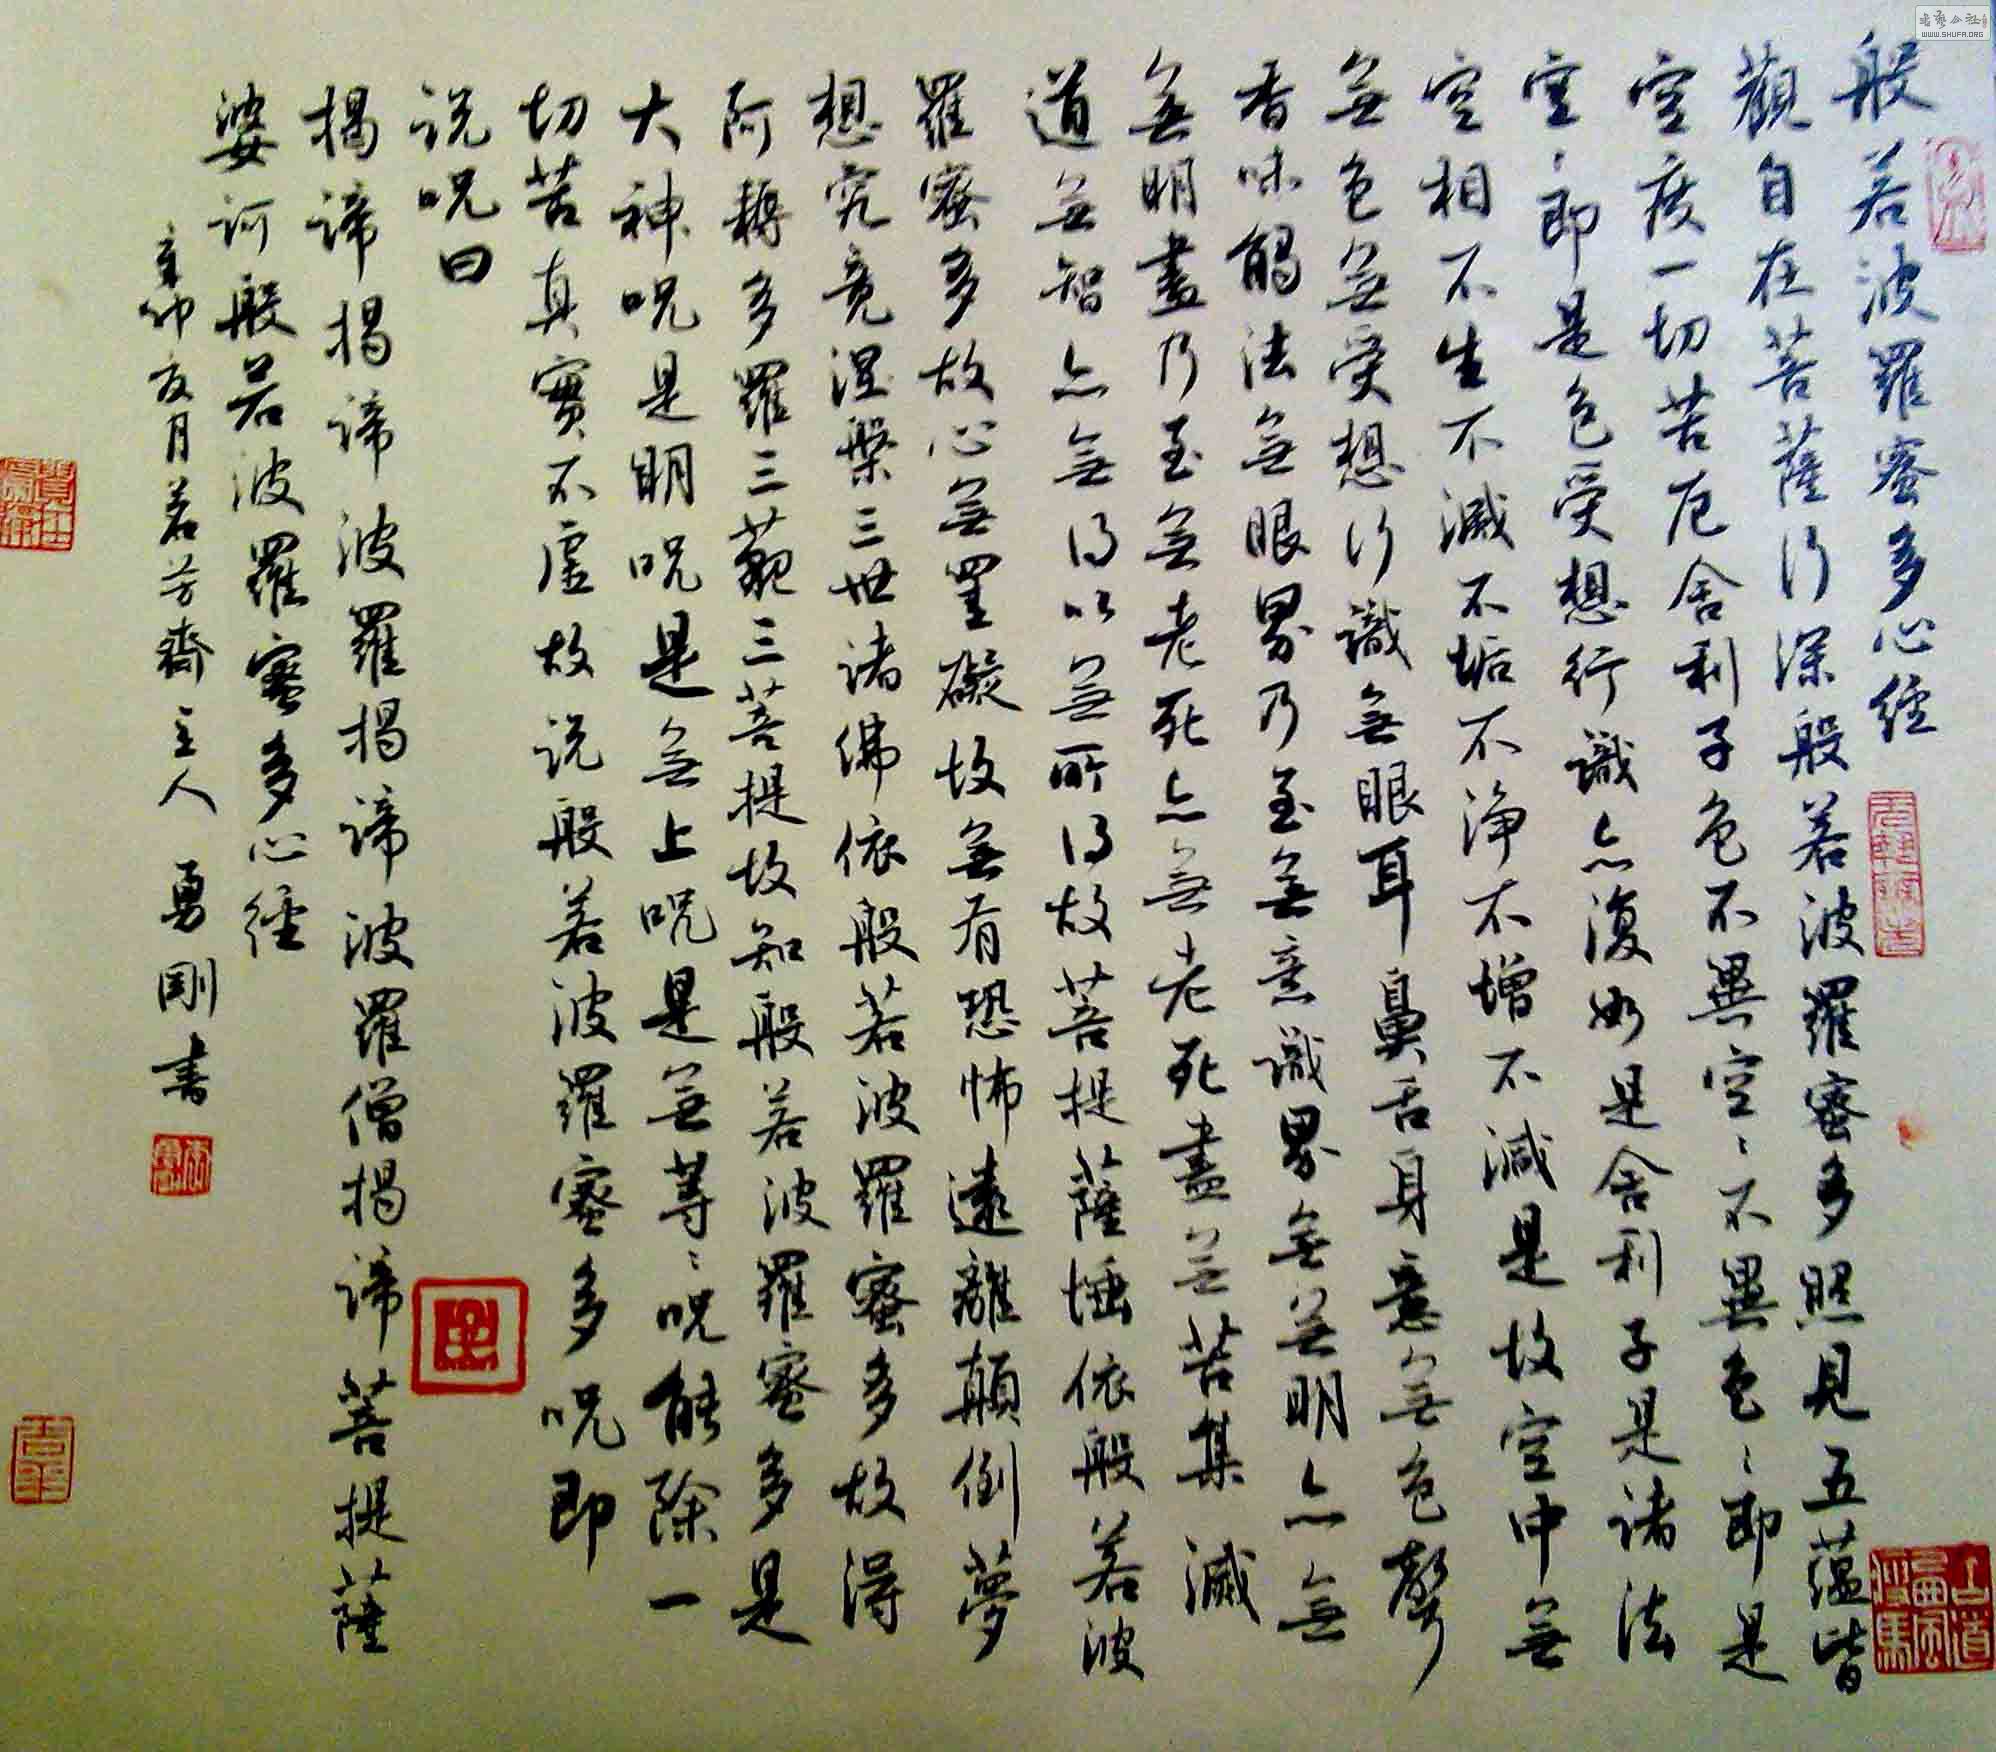 般若波羅蜜多心經
觀自在菩薩行深般若波羅蜜多照見五蘊皆
空度一切苦厄舍利子色不異空〻不異色〻即是
空〻即是色受想行識亦復如是舍利子是諸法
空相不生不滅不垢不淨不增不減是故空中無
無色無受想行識無眼耳鼻舌身意無色聲
香味觸法無眼界乃至無意識界無無明亦無
無明盡乃至無老死亦無老死盡無苦集滅
道無智亦無得以無所得故菩提薩埵依般若波
羅蜜多故心無罣礙故無有恐怖遠離顛倒夢
想究竟涅槃三世諸佛依般若波羅蜜多故得
阿耨多羅三藐三菩提故知般若波羅蜜多是
大神呪是明呪是無上呪是無等〻呪能除一
切苦真實不虛故說般若波羅蜜多呪即
說呪曰
揭諦揭諦波羅揭諦波羅僧揭諦菩提薩
婆訶般若波羅蜜多心經
辛卯夏月若芳齋主人 勇剛書
WWW.SHUFA.ORG